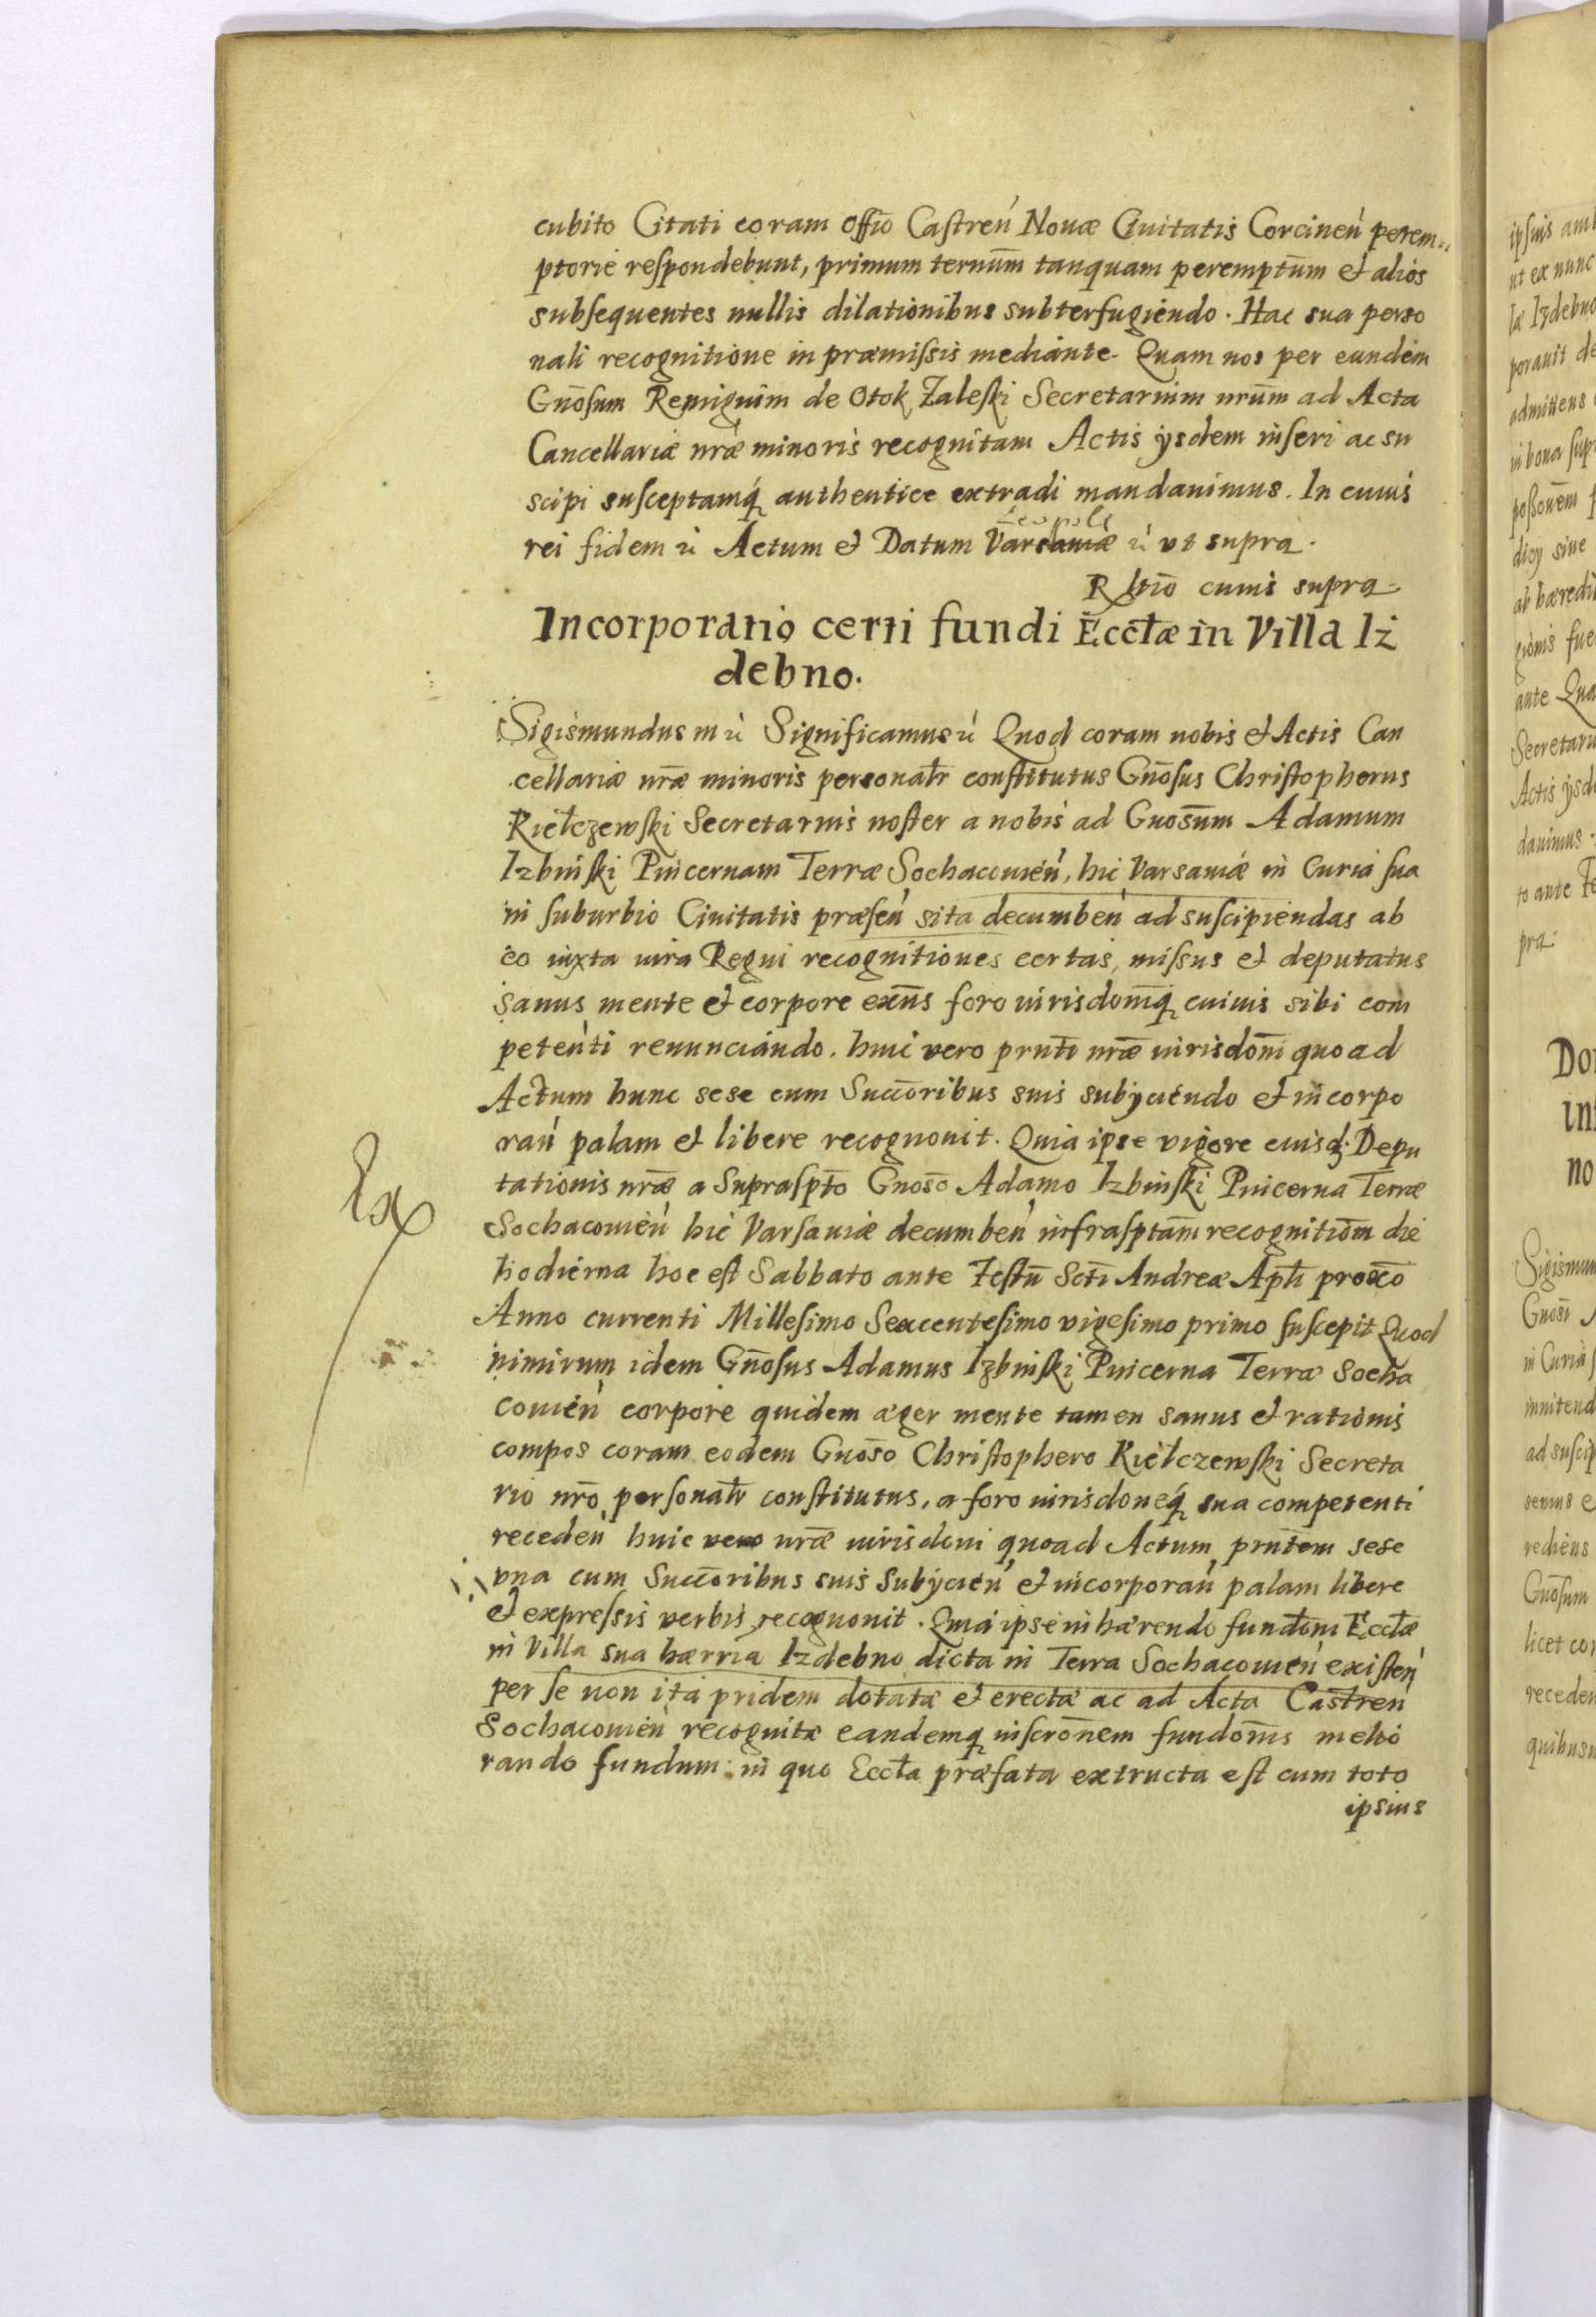 cubito Citati coram Offio Castren Nouæ Ciuitatis Corcinen perem
ptorie respondebunt, primum ternum tanquam peremptum et alios
subsequentes nullis dilationibus subterfugiendo. Hac sua perso
nali recognitione in præmissis mediante. Quam nos per eundem
Gnosum Remigium de Otok Zaleski Secretarium nrum ad Acta
Cancellariæ nræ minoris recognitam Actis ijsdem inseri ac su
scipi susceptamq authentice extradi mandauimus. In cuius
Leopoli
rei fidem Actum et Datum Varsauiæ ut supra.
Rltio cuius supra
Incorporatio certi fundi Ecclæ in Villa Iz
debno.
Sigismundus m Significamus Quod coram nobis et Actis Can
cellariæ nræ minoris personalr constitutus Gnosus Christopherus
Kiełczewski Secretarius noster a nobis ad Gnosum Adamum
Izbinski Pincernam Terræ Sochaccouien, hic Varsauiæ in Curia sua
in suburbio Ciuitatis præsen sita decumben ad suscipiendas ab
eo iuxta iura Regni recognitiones certas, missus et deputatus
sanus mente et corpore exns foro iurisdomq cuiuis sibi com
petenti renunciando. huic vero prnti nræ iurisdoni quoad
Actum hunc sese cum Succoribus suis subyciendo et incorpo
ran palam et libere recognouit. Quia ipse vigore euisd. Depu
tationis nræ a Suprasptο Gnoso Adamo Izbinski Pincerna Terræ
Sochacouien hic Varsauiæ decumben infrasptam recognitiom die
hodierna hoc est Sabbato ante Festu Scti Andreæ Apli proxo
Anno currenti Millesimo Sexcentesimo vigesimo primo suscepit Quod
nimirum idem Gnosus Adamus Izbinski Pincerna Terræ Socha
couien corpore quidem æger mente tamen sanus et rationis
compos coram eodem Gnoso Christophero Kiełczewski Secreta
rio nro personalr constitutus, a foro iurisdoneq sua competenti
receden huic vero nræ iurisdoni quoad Actum prntem sese
vna cum Succoribus suis Subycien et incorporan palam libere
et expressis verbis recognouit. Quia ipse inhærendo fundoni Ecclæ
in Villa sua hærria Izdebno dicta in Terra Sochacouien existen
per se non ita pridem dotatæ et erectæ ac ad Acta Castren
Sochacouien recognitæ eandemq inscronem fundonis melio
rando fundum in quo Eccla præfata extructa est cum toto
ipsius
Ex